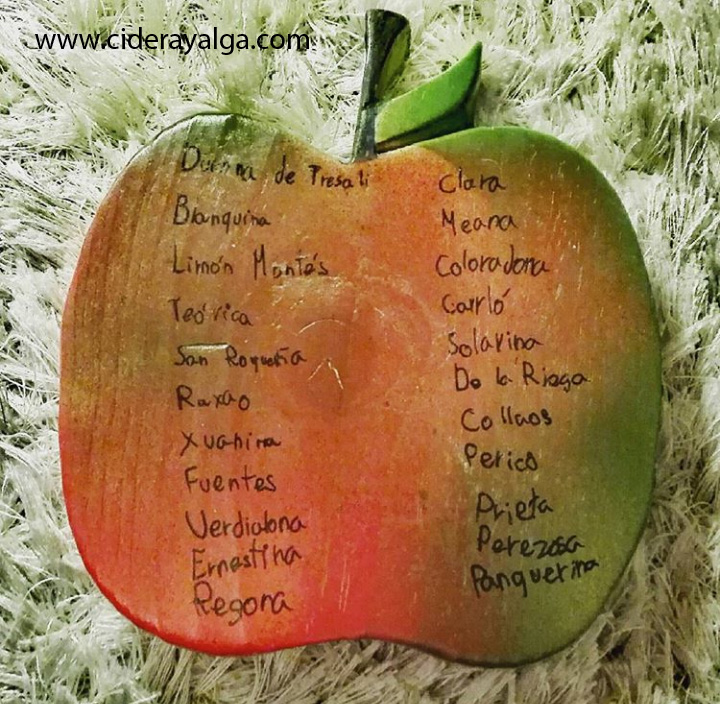 www.siderayalga.com
Durona de Tresali
Blanquina
Limón Montés
Teórica
San Roqueña
Raxao
Xuanina
Fuentes
Verdialona
Ernestina
Regona
Clara
Meana
Coloradona
Carrló
Solarina
De la Riega
Collaos
Perico
Prieta
Perezosa
Panquerina